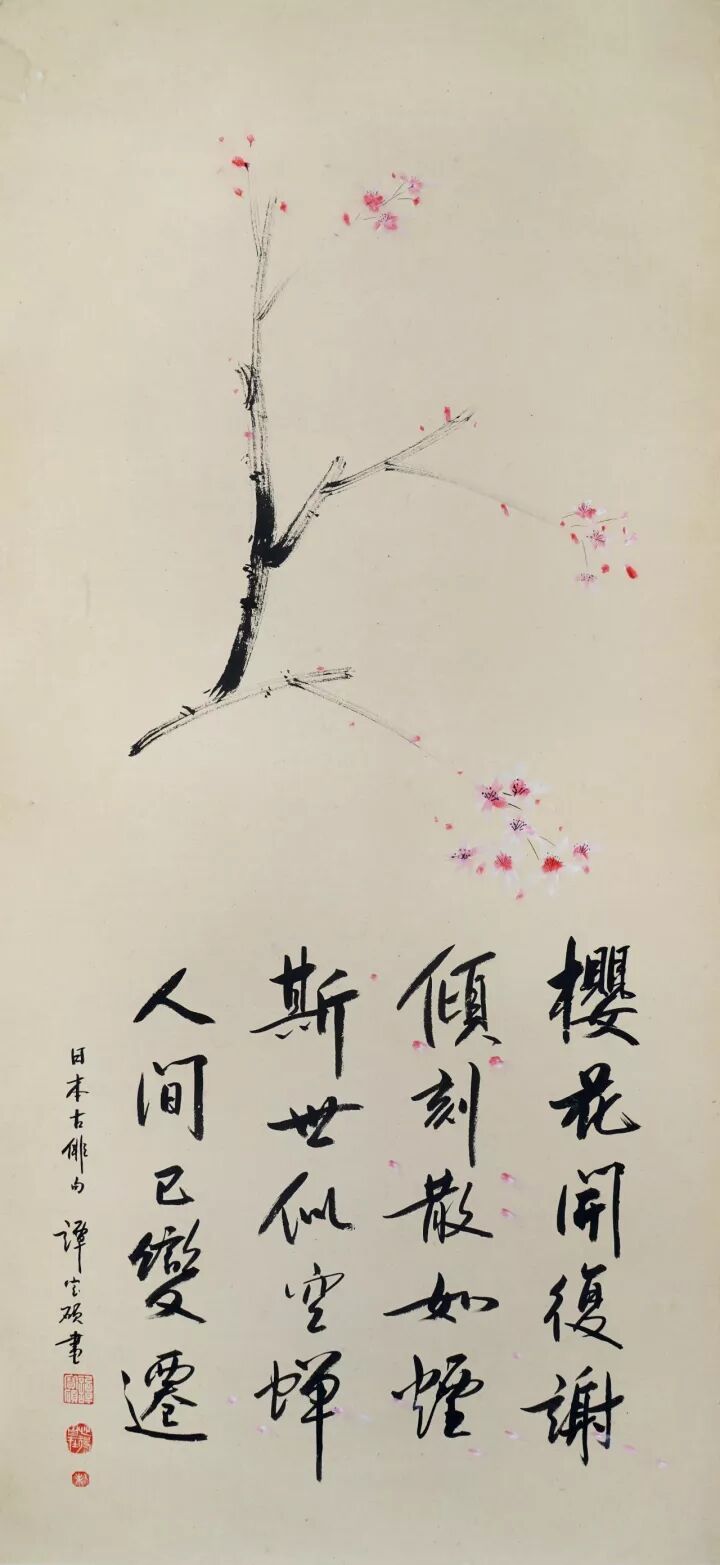 櫻花開復謝
傾刻散如煙
斯世似空蟬
人間已變遷
日本古俳句
譚宝碩書